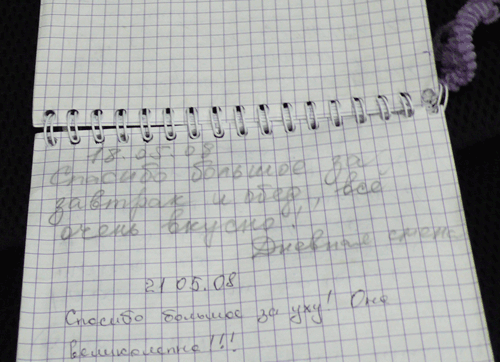 18.05.08
Спасибо большое за
завтрак и обед, всё
очень вкусно!
Дневная смена
21 05.08
Спасибо большое за уху! Она
великолепна!!!